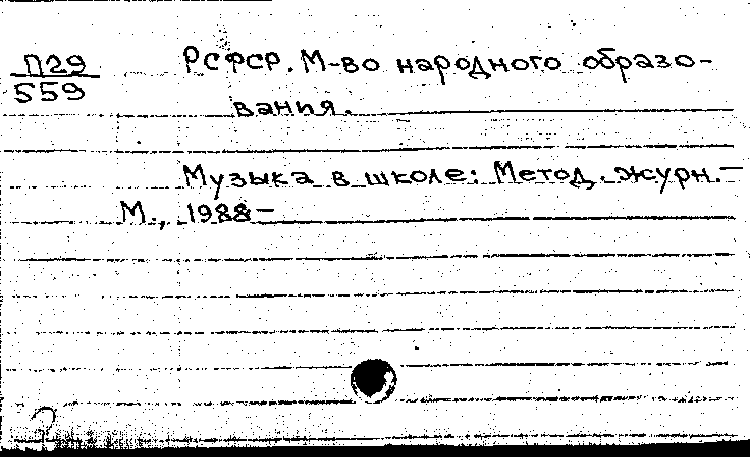 П29
559
РСФСР. М-во народного образо-
вания.
Музыка в школе: Метод. журн.—
М., 1988—